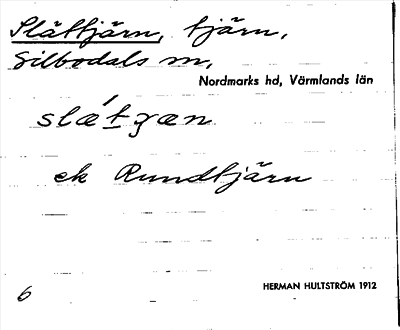 Slättjärn, tjärn,
Silbodals sn,
Nordmarks hd, Värmlands län
slǽtʒæn
ek Rundtjärn
6
HERMAN HULTSTRÖM 1912